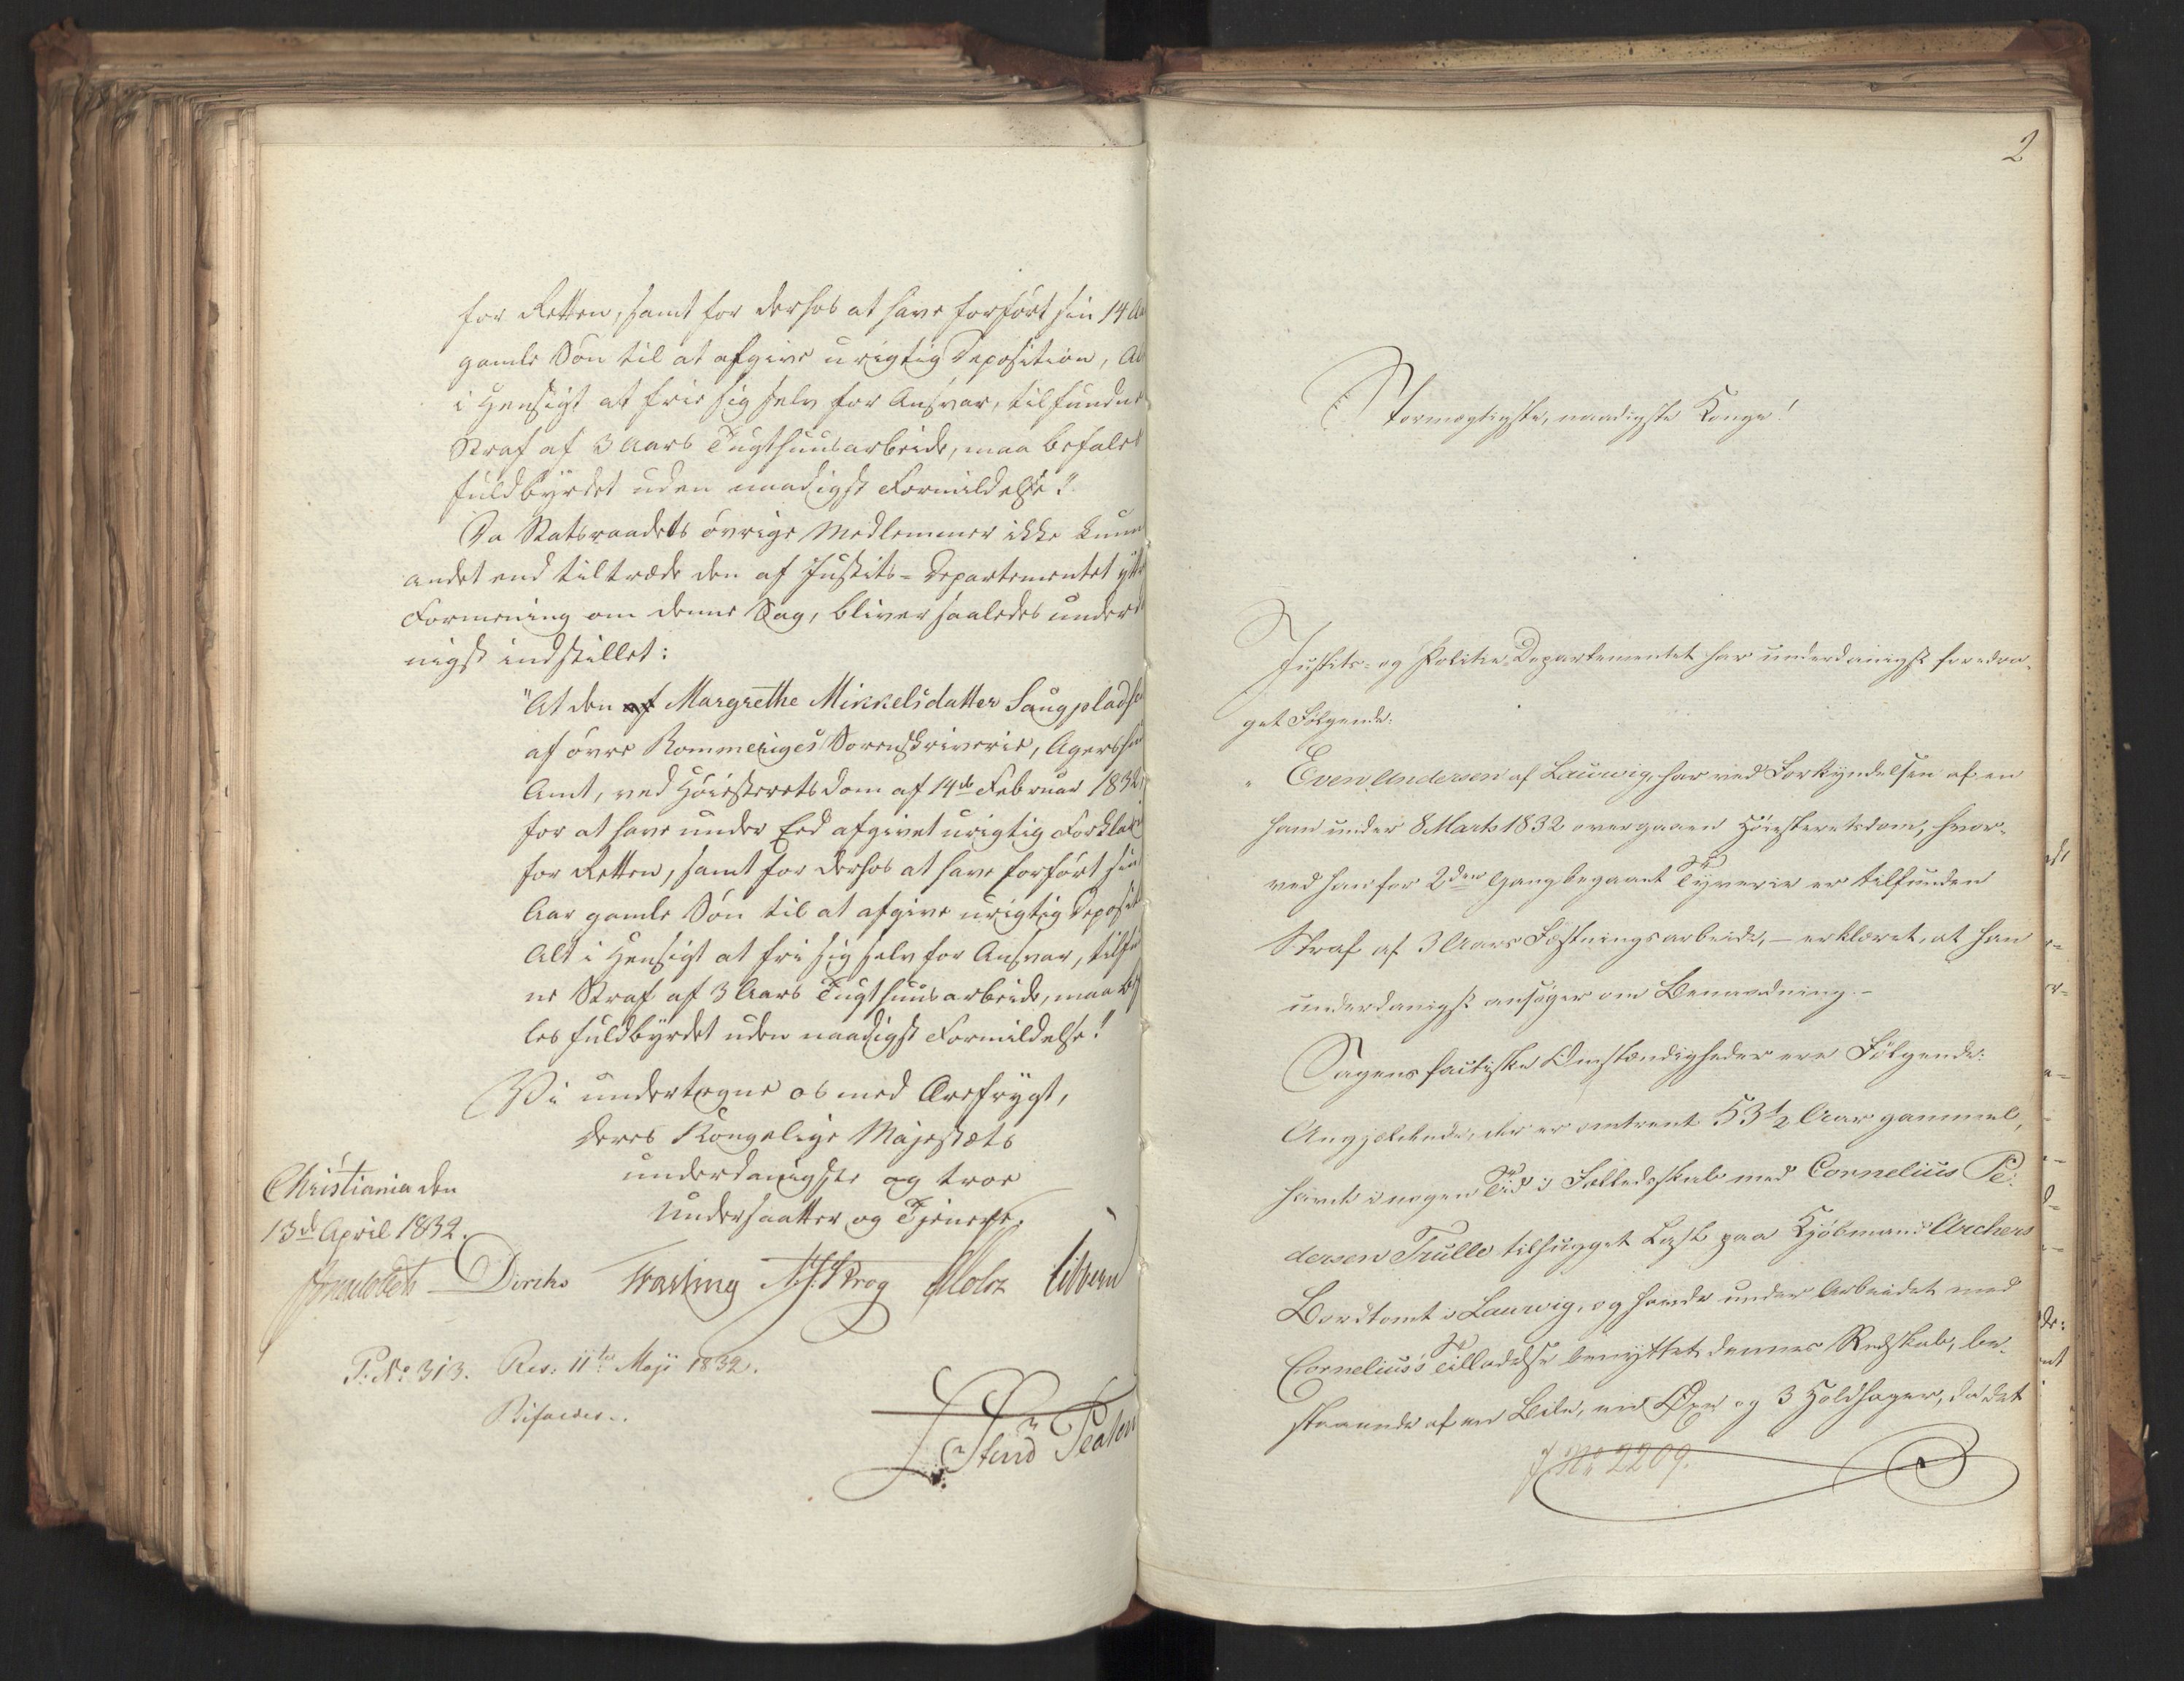 for Retten, samt for derhos at have forført sin 14 Aa
gamle Søn til at afgive urigtig Deposition, Al
i Hensigt at frie sig selv for Ansvar, tilfundne
Straf af 3 Aars Tugthuusarbeide, maa befales
fuldbyrdet uden naadigst Formildelse."
Da Statsraadets øvrige Medlemmer ikke kunn
andet end tiltræde den af Justits-Departementet ytt
Formening om denne Sag, bliver saaledes underd
nigst indstillet:
"At den af Margrethe Mikkelsdatter Saugpladse
af øvre Rommeriges Sorenskriverie, Agershu
Amt, ved Høiesteretsdom af 14de Februar 1832,
for at have under Eed afgivet urigtig Forklar
for Retten, samt for derhos at have forført sin
Aar gamle Søn til at afgive urigtig Deposit
Alt i Hensigt at frie sig selv for Ansvar, tilfu
ne Straf af 3 Aars Tugthuusarbeide, maa bef
les fuldbyrdet uden naadigst Formildelse."
Vi undertegne os med Ærefrygt,
Deres Kongelige Majestæts
underdanigste og troe
Undersaatter og Tjenere.
Christiania den
13de April 1832.
Diriks Fasting Krog Holst
P: No 313. Res: 11te Maji 1832.
Bifaldes.
2
Stormægtigste, naadigste Konge!
Justits- og Politie-Departementet har underdanigst foredra-
get Følgende:
" Even Andersen af Laurvig, har ved Forkyndelsen af en
ham under 8 Marts 1832 overgaaen Høiesteretsdom, hvor-
ved han for 2den Gang begaaet Tyverie er tilfunden
Straf af 3 Aars Fæstningsarbeide, – erklæret, at han
underdanigst ansøger om Benaadning.–
Sagens factiske Omstændigheder ere Følgende:
Angjældende, der er omtrent 53 1/2 Aar gammel,
havde i nogen Tid i Fælledsskab med Cornelius Pe-
dersen Trulle tilhugget Last paa Kjøbmand Archers
Bordtomt i Laurvig, og havde under Arbeidet med
Cornelius's Tilladelse benyttet dennes Redskab, be-
staaende af en Bile, en Øxe og 3 Holdhager, da det
J. No 2209.